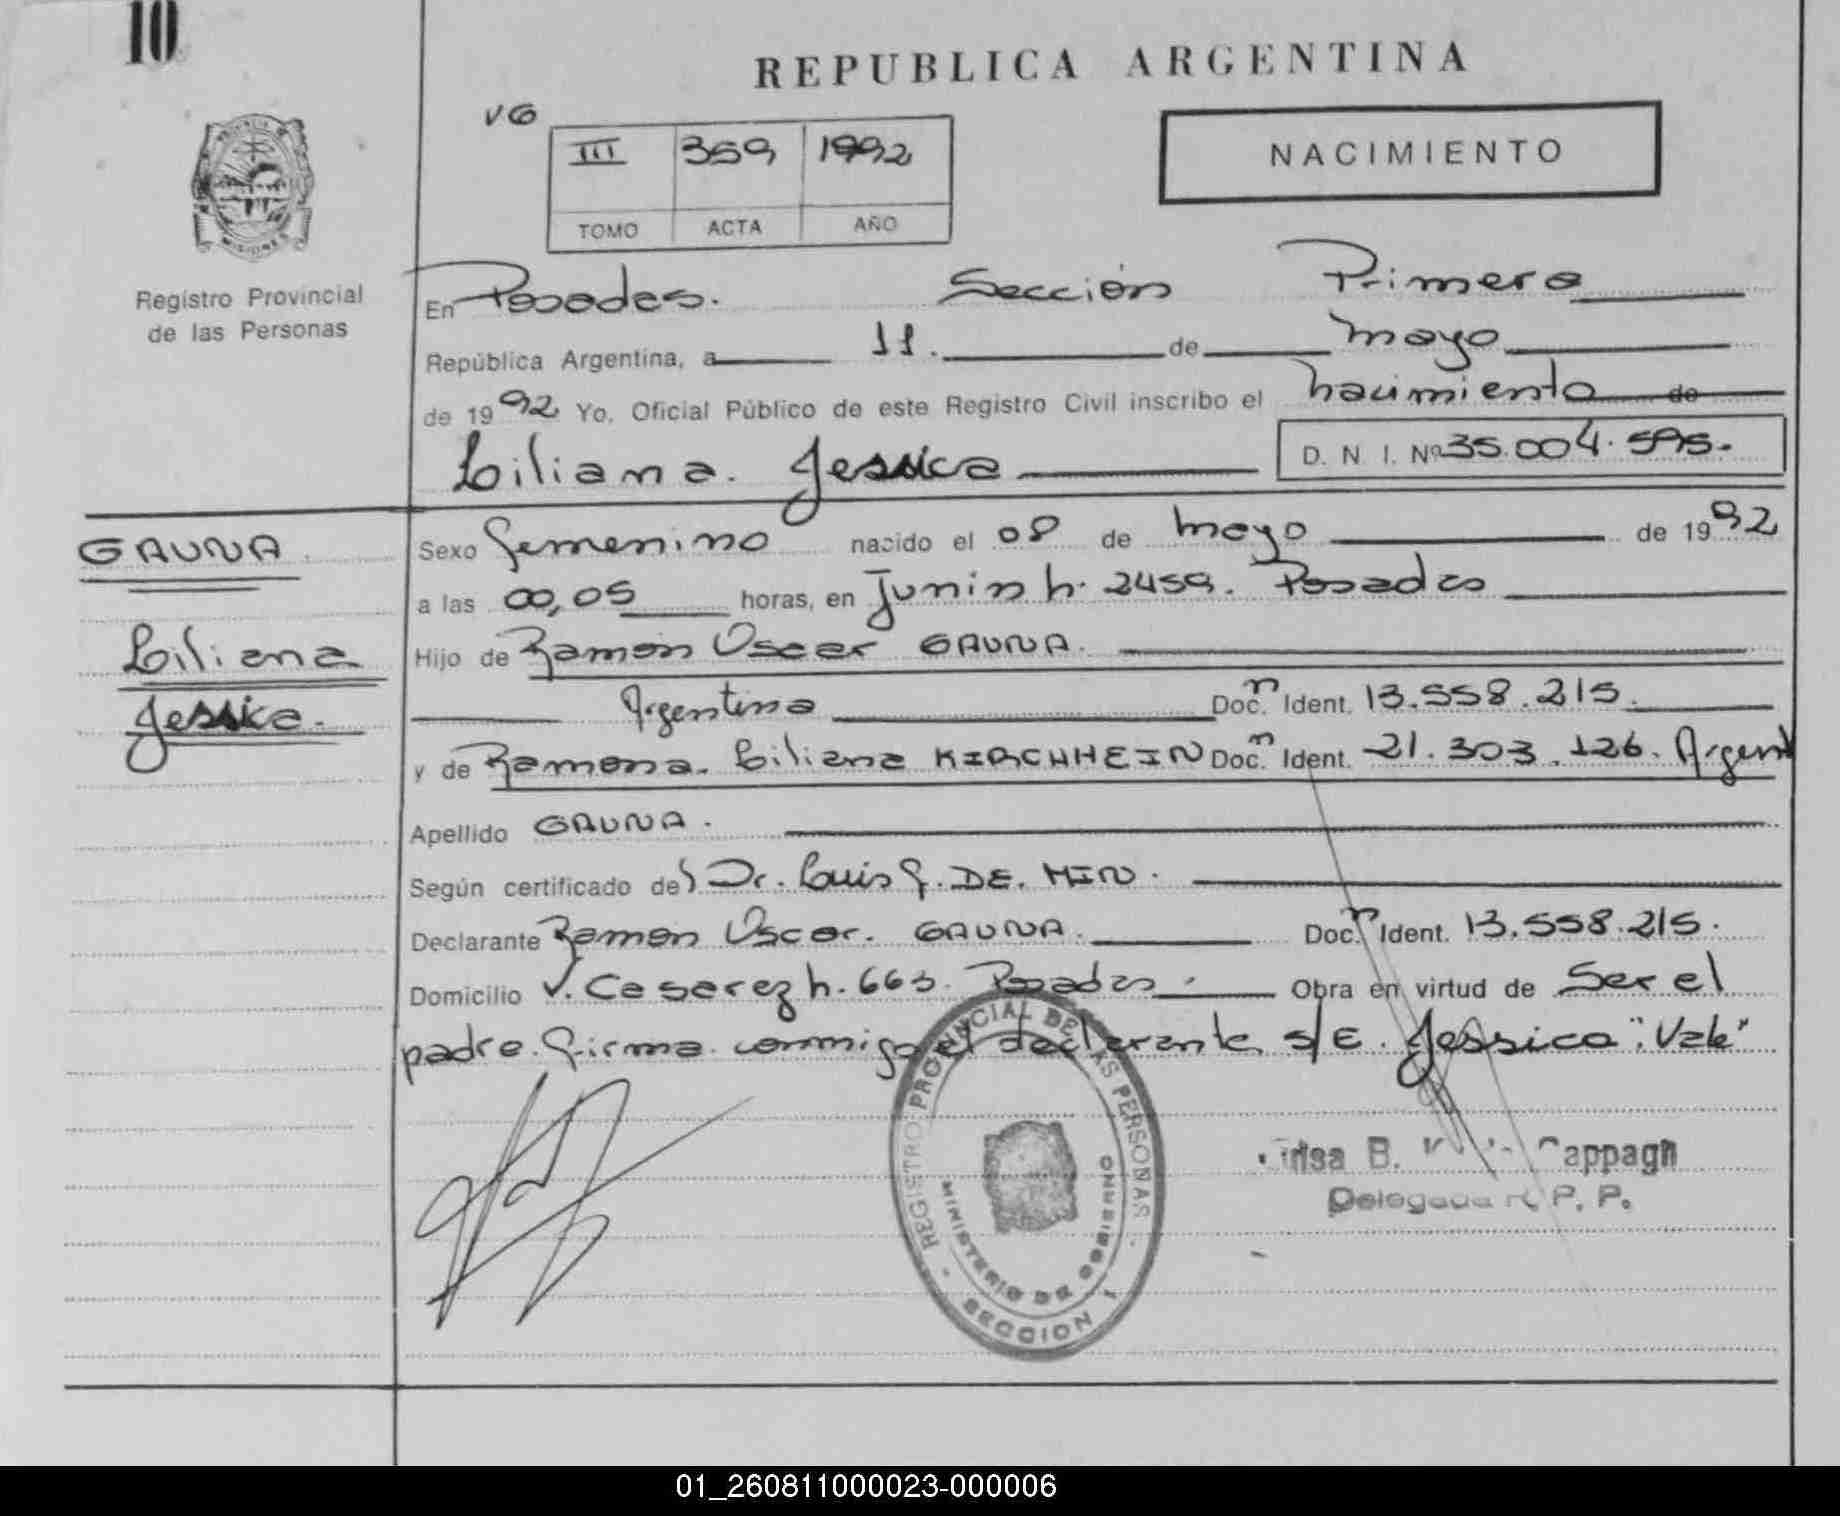 10
REPUBLICA ARGENTINA
VG
III 359 1992
TOMO ACTA AÑO
NACIMIENTO
PROVINCIA DE
MISIONES
Registro Provincial
de las Personas
En Posadas. Sección Primera
República Argentina, a 11. de mayo
de 1992 Yo, Oficial Público de este Registro Civil inscribo el nacimiento de
Liliana. Jessica D. N. I. Nº 35.004.595.
GAUNA
Liliana
Jessica.
Sexo femenino nacido el 08 de mayo de 1992
a las 00,05 horas, en Junin h. 2459. Posadas
Hijo de Ramón Oscar GAUNA.
Argentina Doc. n Ident. 13.558.215.
y de Ramona. Liliana KIRCHHEIN Doc. n Ident. 21.303.126. Argent
Apellido GAUNA.
Según certificado del Dr. Luis G. DE. MIN.
Declarante Ramon Oscar. GAUNA. Doc. n Ident. 13.558.215.
Domicilio V. Casarez h. 663. Posadas. Obra en virtud de Ser el
padre. firma. conmigo el declarante, s/E. Jessica ". Vale"
REGISTRO PROVINCIAL DE LAS PERSONAS
MINISTERIO DE GOBIERNO
SECCION 1
B. Cappagn
Delegada R. P. P.
01_260811000023-000006